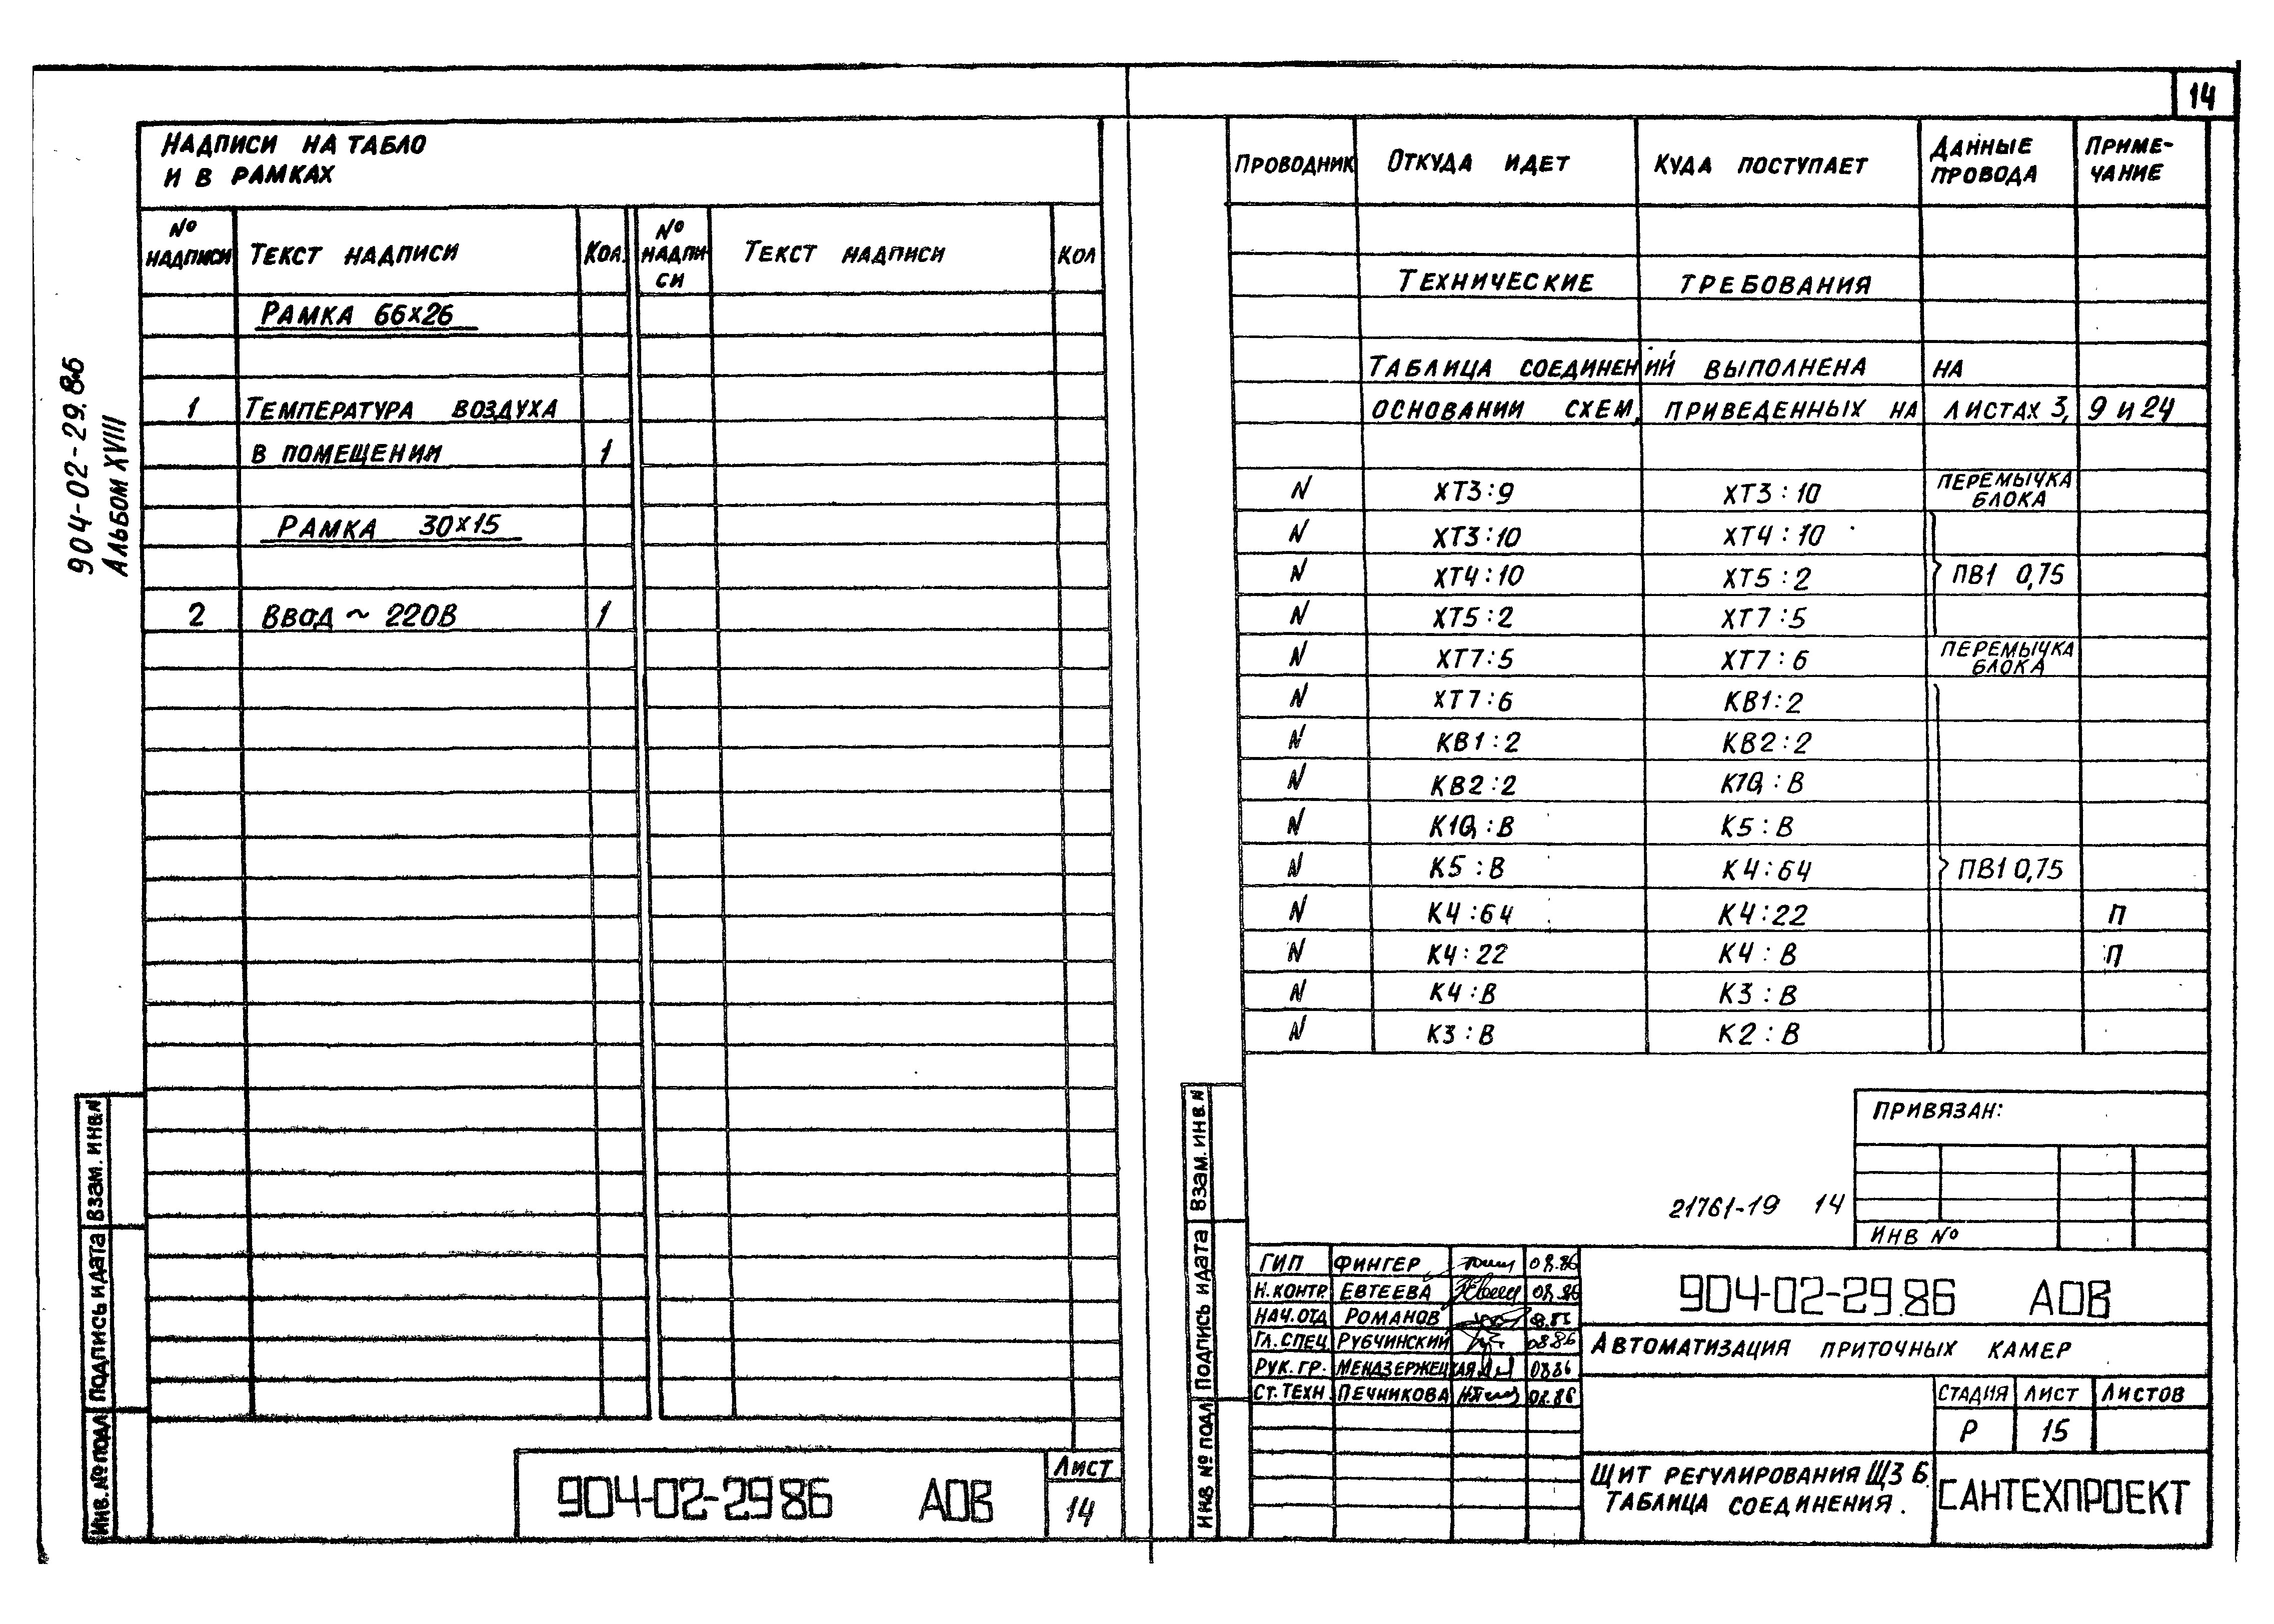 14
904-02-29.86
Альбом XVIII
Надписи на табло
и в рамках
№ надписи Текст надписи Кол. № надписи Текст надписи Кол
Рамка 66х26
1 Температура воздуха
в помещении 1
Рамка 30х15
2 Ввод ~ 220В 1
Взам. инв.N
Подпись и дата
Инв. № подл
904-02-2986 АОВ
Лист
14
Проводник Откуда идет Куда поступает Данные провода Примечание
Технические требования
Таблица соединений выполнена на
основании схем, приведенных на листах 3, 9 и 24
N ХТ3:9 ХТ3:10 перемычка блока
N ХТ3:10 ХТ4:10
N ХТ4:10 ХТ5:2 ПВ1 0,75
N ХТ5:2 ХТ7:5
N ХТ7:5 ХТ7:6 перемычка блока
N ХТ7:6 КВ1:2
N КВ1:2 КВ2:2
N КВ2:2 К1Q:В
N К1Q:В К5:В
N К5:В К4:64 ПВ1 0,75
N К4:64 К4:22 П
N К4:22 К4:В П
N К4:В К3:В
N К3:В К2:В
Привязан:
21761-19 14
Инв №
Взам. инв.N
Подпись и дата
Инв № подл
ГИП Фингер 08.86
Н.контр Евтеева 08.86
Нач.отд Романов
Гл.спец Рубчинский 08.86
Рук.гр. Мендзержецкая 08.86
Ст.техн Печникова 08.86
904-02-29.86 АОВ
Автоматизация приточных камер
Стадия Лист Листов
Р 15
Щит регулирования Щ3 Б
Таблица соединения.
САНТЕХПРОЕКТ